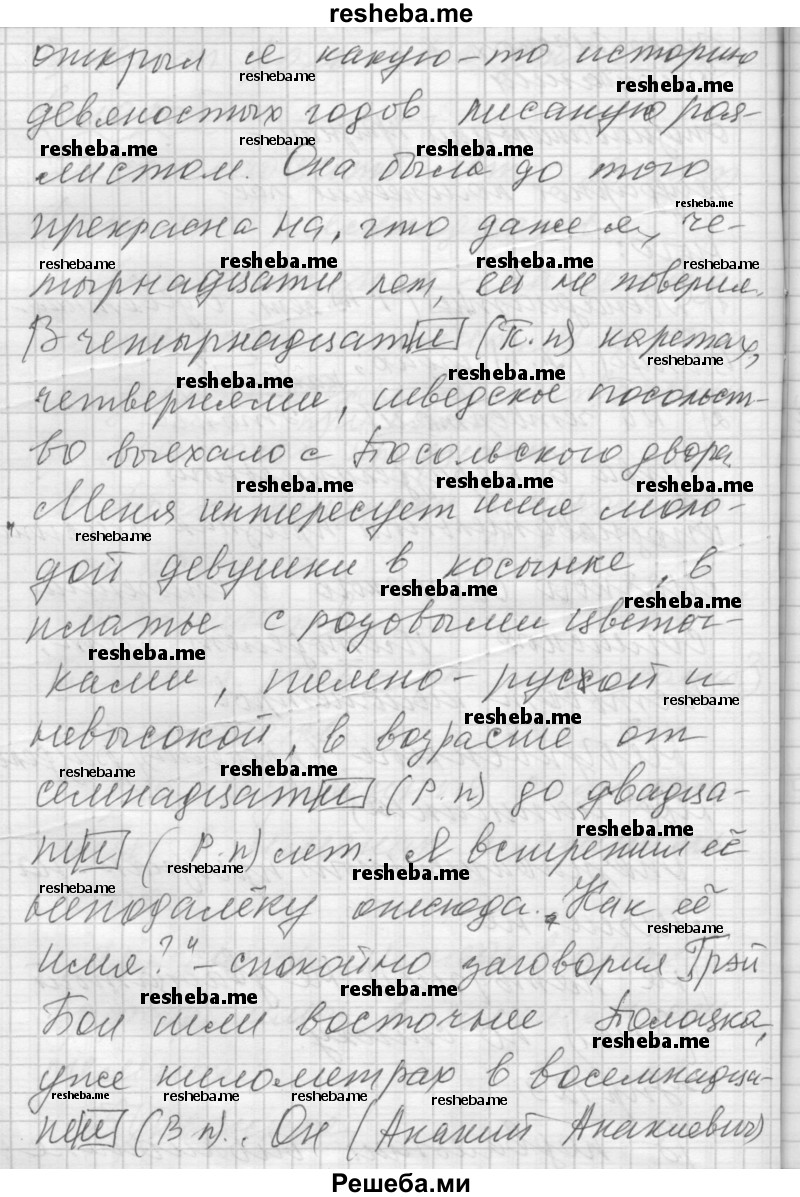 resheba.me
открыл я какую-то историю
девяностых годов писаную роя-
листом. Она была до того
прекрасна на, что даже я, че-
тырнадцати лет, ей не поверил.
В четырнадцати (П.п) каретах,
четвернями, шведское посольст-
во выехало с Посольского двора.
Меня интересует имя моло-
дой девушки в косынке, в
платье с розовыми цветоч-
ками, темно-русской и
невысокой, в возрасте от
семнадцати (Р.п) до двадца-
ти (Р.п) лет. Я встретил её
неподалёку отсюда. „Как её
имя?“ – спокойно заговорил Грэй
Бои шли восточнее Полоцка,
уже километрах в восемнадца-
ти (В п). Он (Акакий Акакиевич)
Решеба.ми